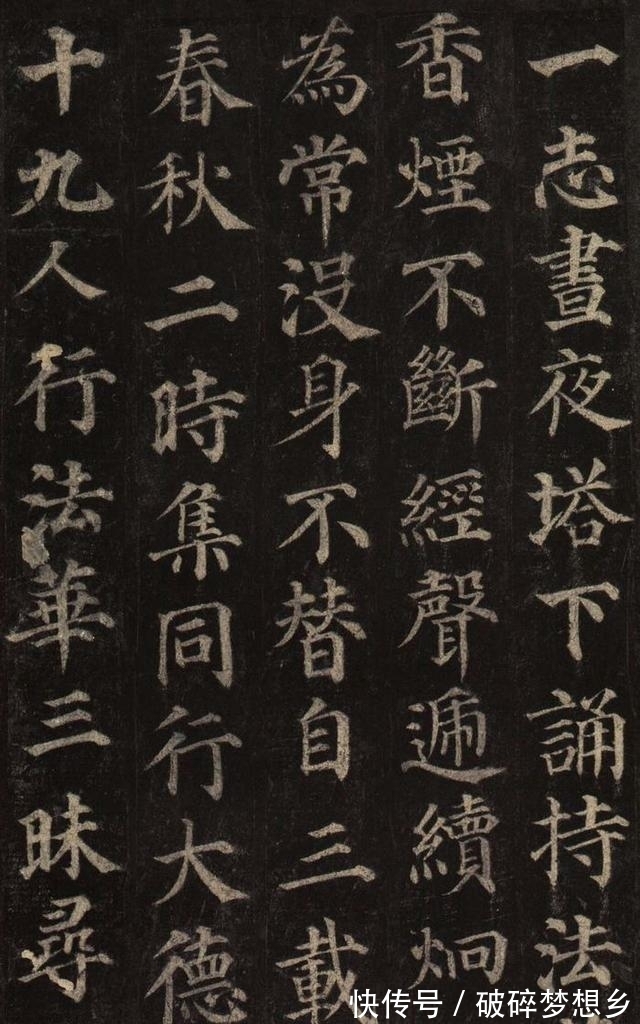 一志晝夜塔下誦持法
香煙不斷經聲遞續炯
為常没身不替自三載
春秋二時集同行大德
十九人行法華三昧尋
快传号 / 破碎梦想乡